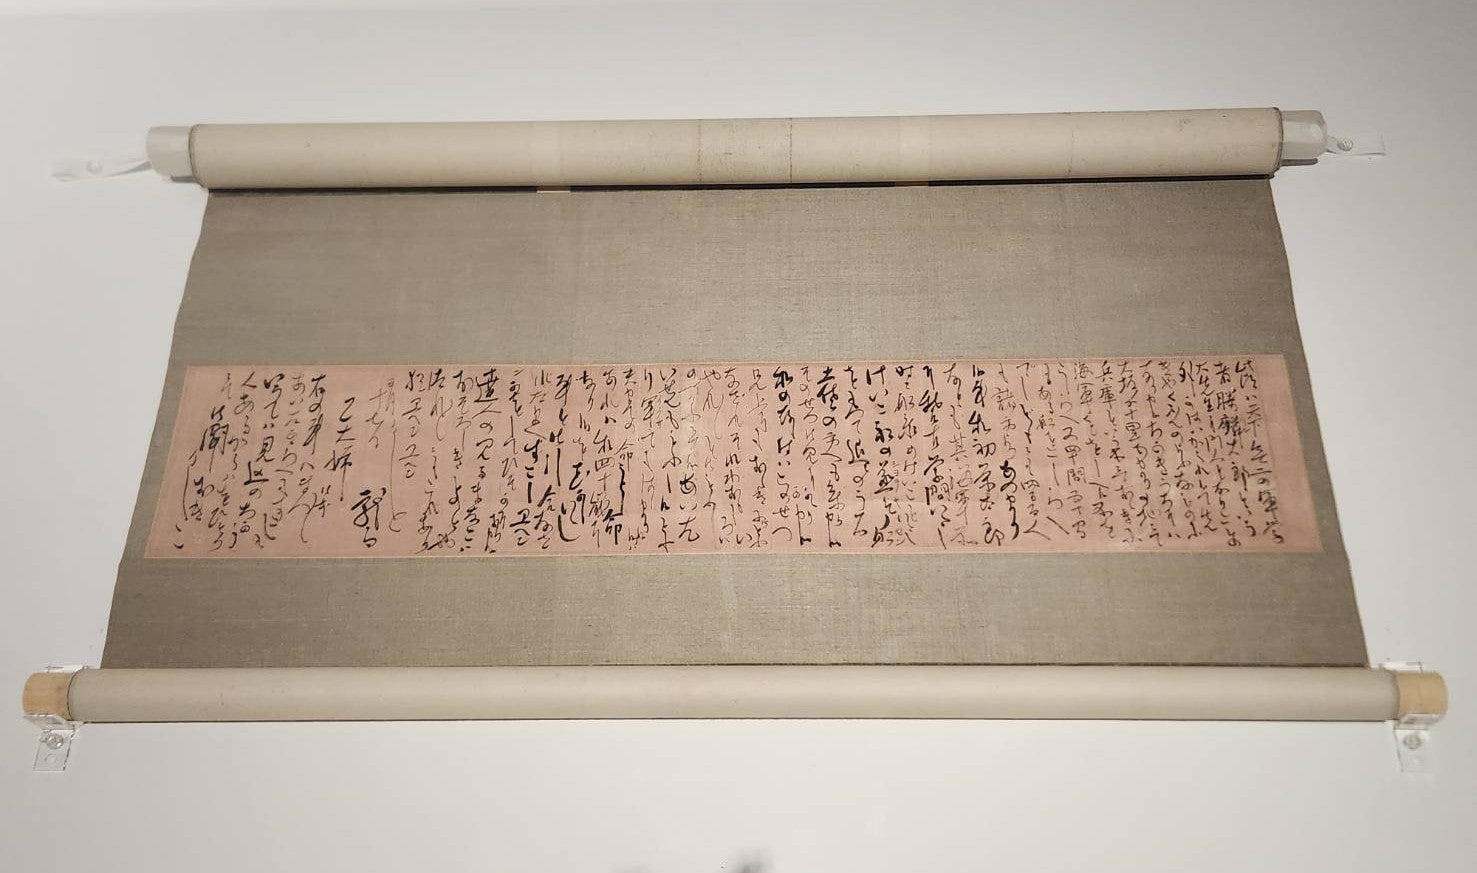 此頃ハ天下無二の軍学
者勝麟太郎という
大先生に門人となりことの外
かはいがられ候て先
きやくぶんのようなものに
なり申候ちかきうちにハ
大坂より十里あまりの地ニて
兵庫という所ニておゝきに
海軍ををしへ候所を
こしらへ又四十間五十間
もある船をこしらへ
でしどもニも四五百人
も諸方よりあつまり
候事私初栄太郎
なども其海軍所
に稽古学問いたし
時々船乗のけいこもいたし
けいこ船の蒸気船
をもつて近々のうち
土佐の方へも参り申候
そのせつ御見にかゝり可申候
私の存じ付ハこのせつ
兄上にもおゝきに御どふい
なされそれわおもしろい
やれやれと御もふし
のつがふニて候あいだ
いぜんももふし候とふ
り軍サでもはじまり候時ハ
夫までの命ことし命
あれバ私四十歳に
なり候をむかしいゝし
事を御引合
なされたまへすこしヱヘン
ニかおしてひそかにおり申候
達人の見るまなこハ
おそろしきものとや
つれづれニもこれあり
猶ヱヘンヱヘン
かしこ
五月十七日
龍馬
乙大姉御本
右の事ハまづまづ
あいだがらへもすこしも
いうてハ見込のちがう
人あるからハをひとり
ニて御聞おき
かしこ